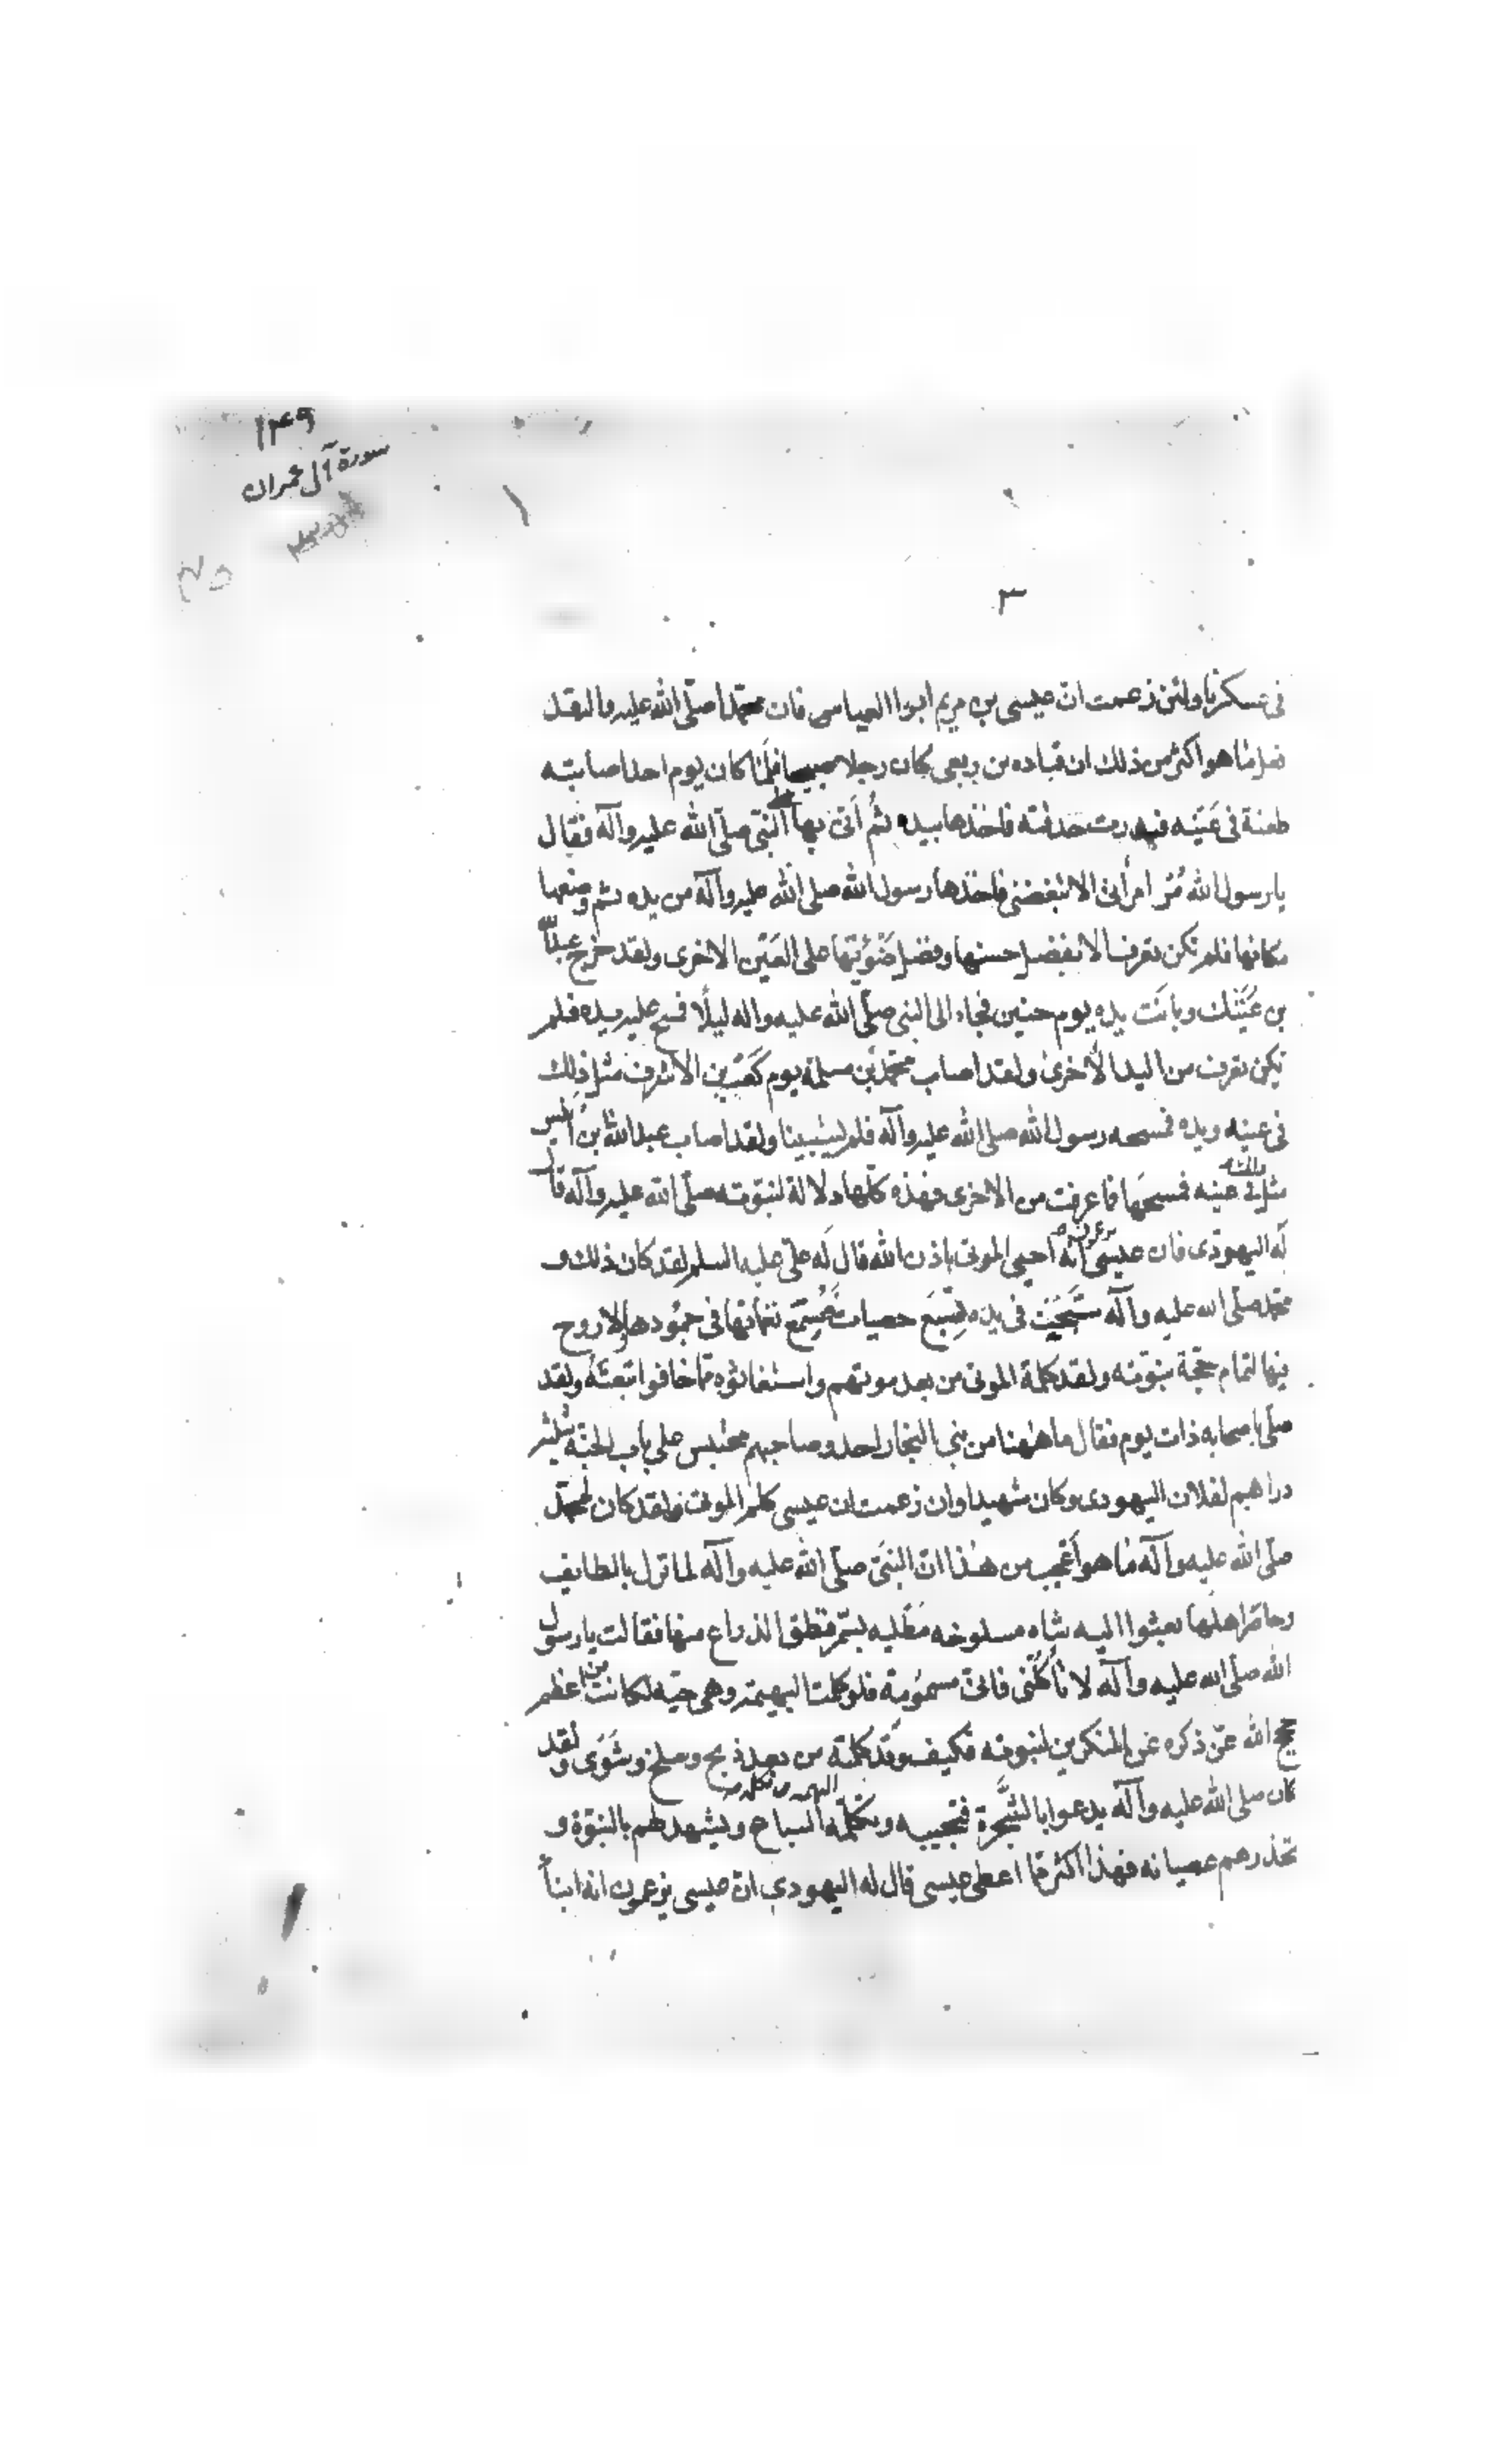 ١٣٩
سورة آل عمران
٣٥
١
٣
فى عسكرنا ولئن زعمت ان عيسى بن مريم ابرا العميا فان محمدا صلّى الله عليه واله قد
فعل ما هو اكثر من ذلك ان قتاده بن ربعى كان رجلا صبيحا فلمّا كان يوم احد اصابته
طعنة فى عَيْنِه فبدرت حدقته فاخذها بيده ثم اَتى بها النبى صلّى الله عليه وآله فقال
يا رسول الله انّ امرأتى الان تبغضنى فاخذها رسول الله صلى الله عليه وآله من يده ثم وضعها
مكانها فلم تكن تعرف الا بفضل حسنها وفضل ضَوْئِها على العَيْن الاخرى ولقد خرج عبدالله
بن عَتِيْك وبانَت يده يوم حنين فجاء الى النبى صلّى الله عليه واله ليلًا فمسح عليه يده فلم
تكن تعرف من اليد الأخرى ولقد اصاب محمّد بن مسلمة يوم كَعْب بن الاشرف مثل ذلك
فى عينه ويده فمسحه رسول الله صلى الله عليه وآله فلم يستبينا ولقد اصاب عبد الله بن اُنَيس
مثل ذلك فى عينه فمسحها فما عرفت من الاخرى فهذه كلّها دلالة لنبوّته صلّى الله عليه وآله قال
له اليهودى فان عيسى يزعمون انّه احيى الموتى باذن الله قال لَه علىّ عليه السلم لقد كان ذلك و
محمّد صلّى الله عليه وآله سَبَّحَت فى يده تِسْعَ حصيات تُسْمَع نغماتها فى جمُودها ولا روح
فيها لتمام حجّة نبوّته ولقد كلمَّة الموتى من بعد موتهم واستغاثوه ممّا خافوا تبعتَهُ ولقد
صلّى باصحابه ذات يوم فقال ما هٰهنا من بنى النجار احد وصاحبهم محتبس على باب الجنّة بثلثة
دراهم لفلان اليهودى وكان شهيدا وان زعمت ان عيسى كلم الموتى فلقد كان لمحمّد
صلّى الله عليه وآله مٰا هو اَعْجب من هٰذا انّ النبَىّ صلّى الله عليه وآله لما نزل بالطايف
وحاصر اهلها بعثوا اليه شاه مسلوخه مَطْليه بسمّ فنطق الذراع منها فقالت يا رسول
الله صلّى الله عليه وآله لا تأكُلْنى فانىّ مسمُومة فلو كلمت البهيمة وهى حيّه لكانت من اعظم
حجج الله عزّ ذكره على المنكرين لنبوته فكيف وقد كلمته من بعد ذبح وسلخ وشَوَى ولقد
كان صلى الله عليه وآله يدعوا بالشَّجرة فتجيبه وتكلّمه البهيمه وتكلمه السباع وتشهد لهم بالنبّوة و
تحذرهم عصيانه فهذا اكثر ممّا اعطى عيسى قال له اليهودى انّ عيسى يزعمون انه انبأ